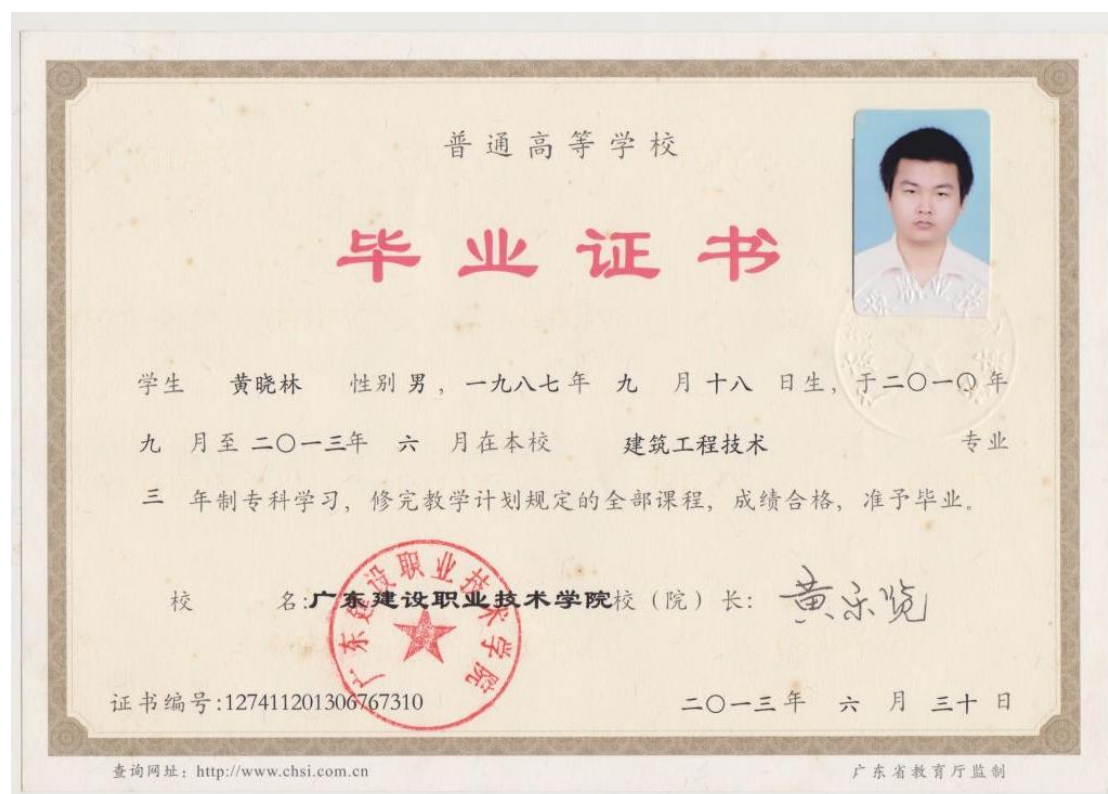 普通高等学校
毕业证书
学生 黄晓林 性别 男，一九八七年 九 月十八 日生，于二〇一〇年
九 月至 二〇一三年 六 月在本校 建筑工程技术 专业
三 年制专科学习，修完教学计划规定的全部课程，成绩合格，准予毕业。
校 名:广东建设职业技术学院校（院）长:
广东建设职业技术学院
证书编号:127411201306767310 二〇一三年 六 月 三十 日
查询网址：http://www.chsi.com.cn 广东省教育厅监制